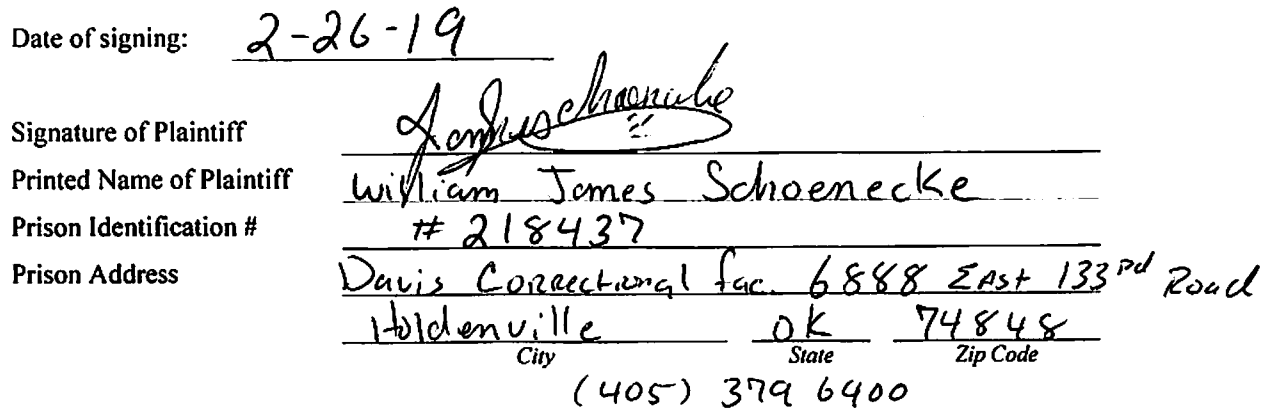 Date of signing: 2-26-19
Signature of Plaintiff
Printed Name of Plaintiff William James Schoenecke
Prison Identification # # 218437
Prison Address Davis Correctional fac. 6888 East 133rd Road
Holdenville OK 74848
City State Zip Code
(405) 379 6400